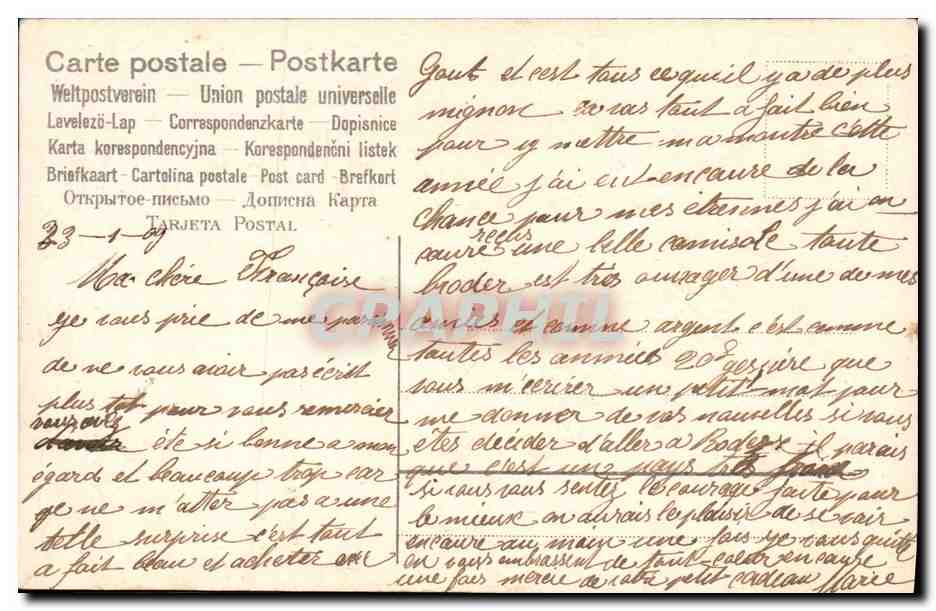 Carte postale — Postkarte
Weltpostverein — Union postale universelle
Levelezö-Lap — Correspondenzkarte — Dopisnice
Karta korespondencyjna — Korespondenčni listek
Briefkaart - Cartolina postale - Post card - Brefkort
Открытое-письмо — Дописна Карта
TARJETA POSTAL
23-1-09
Ma chére Françoise
ye vous prie de me pardonner
de ne vous avoir pas écrit
plus tot pour vous remercier
vous avez été si bonne a mon
égard et beaucoup trop car
ye ne m'atter pas a une
telle surprise c'est tout
a fait beau et acheter avec
Gout et cest tous ce queil y a de plus
mignon tout a fait bien
pour y mettre ma montre c'ette
année j'ai eut encaure de la
chance pour mes étennes j'ai an
caure reçus une belle camisole toute
broder est tres ouvrager d'une de mes
amies et comme argent c'est comme
toutes les années 20f gespére que
vous m'ecrirer un petit mot pour
me donner de vos nouvelles si vous
êtes decider d'aller a Rodez il parais
que c'est un pays très froid
si vous vous sentez le courage faite pour
le mieux on aurais le plaisir de se voir
encaure au moin une fois ye vous quitte
en vous embrassent de tout coeur encaure
une fois mercie de votre petit cadeau Marie
GRAPHIL